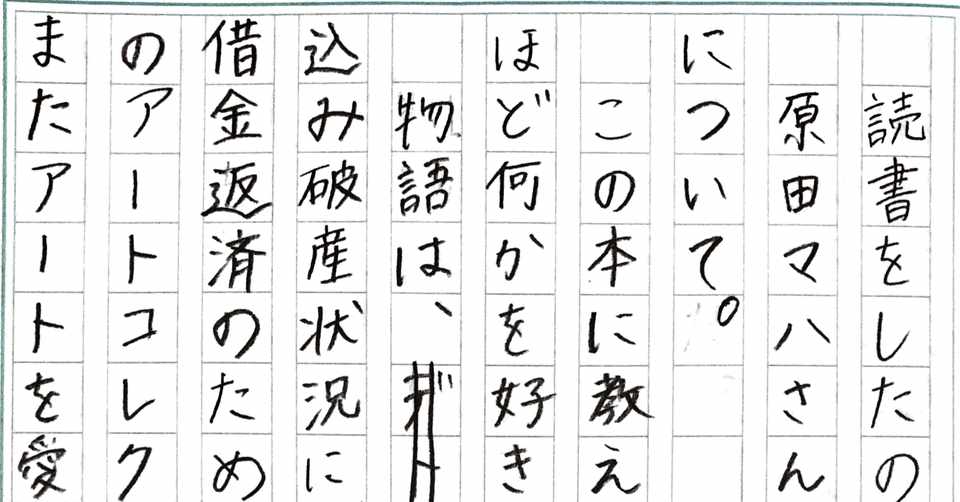 読書をしたの
原田マハさん
について。
この本に教え
ほど何かを好き
物語は、
込み破産状況に
借金返済のため
のアートコレク
またアートを愛